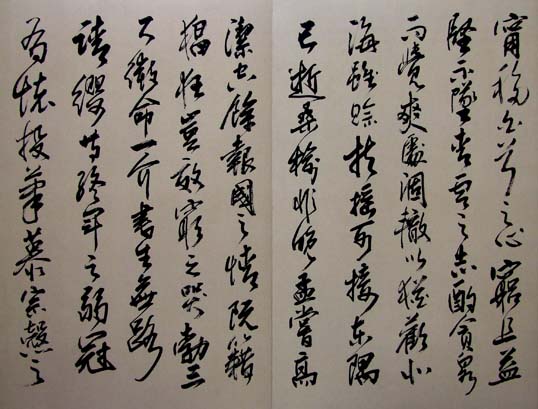 甯移白首之心窮且益
堅不墜青雲之志酌貪泉
而覺爽處涸轍以猶歡北
海雖賒扶搖可接東隅
已逝桑榆非晚孟嘗高
潔空餘報國之情阮籍
猖狂豈效窮之哭勃三
尺微命一介書生無路
請纓等終軍之弱冠
有懷投筆慕宗愨之